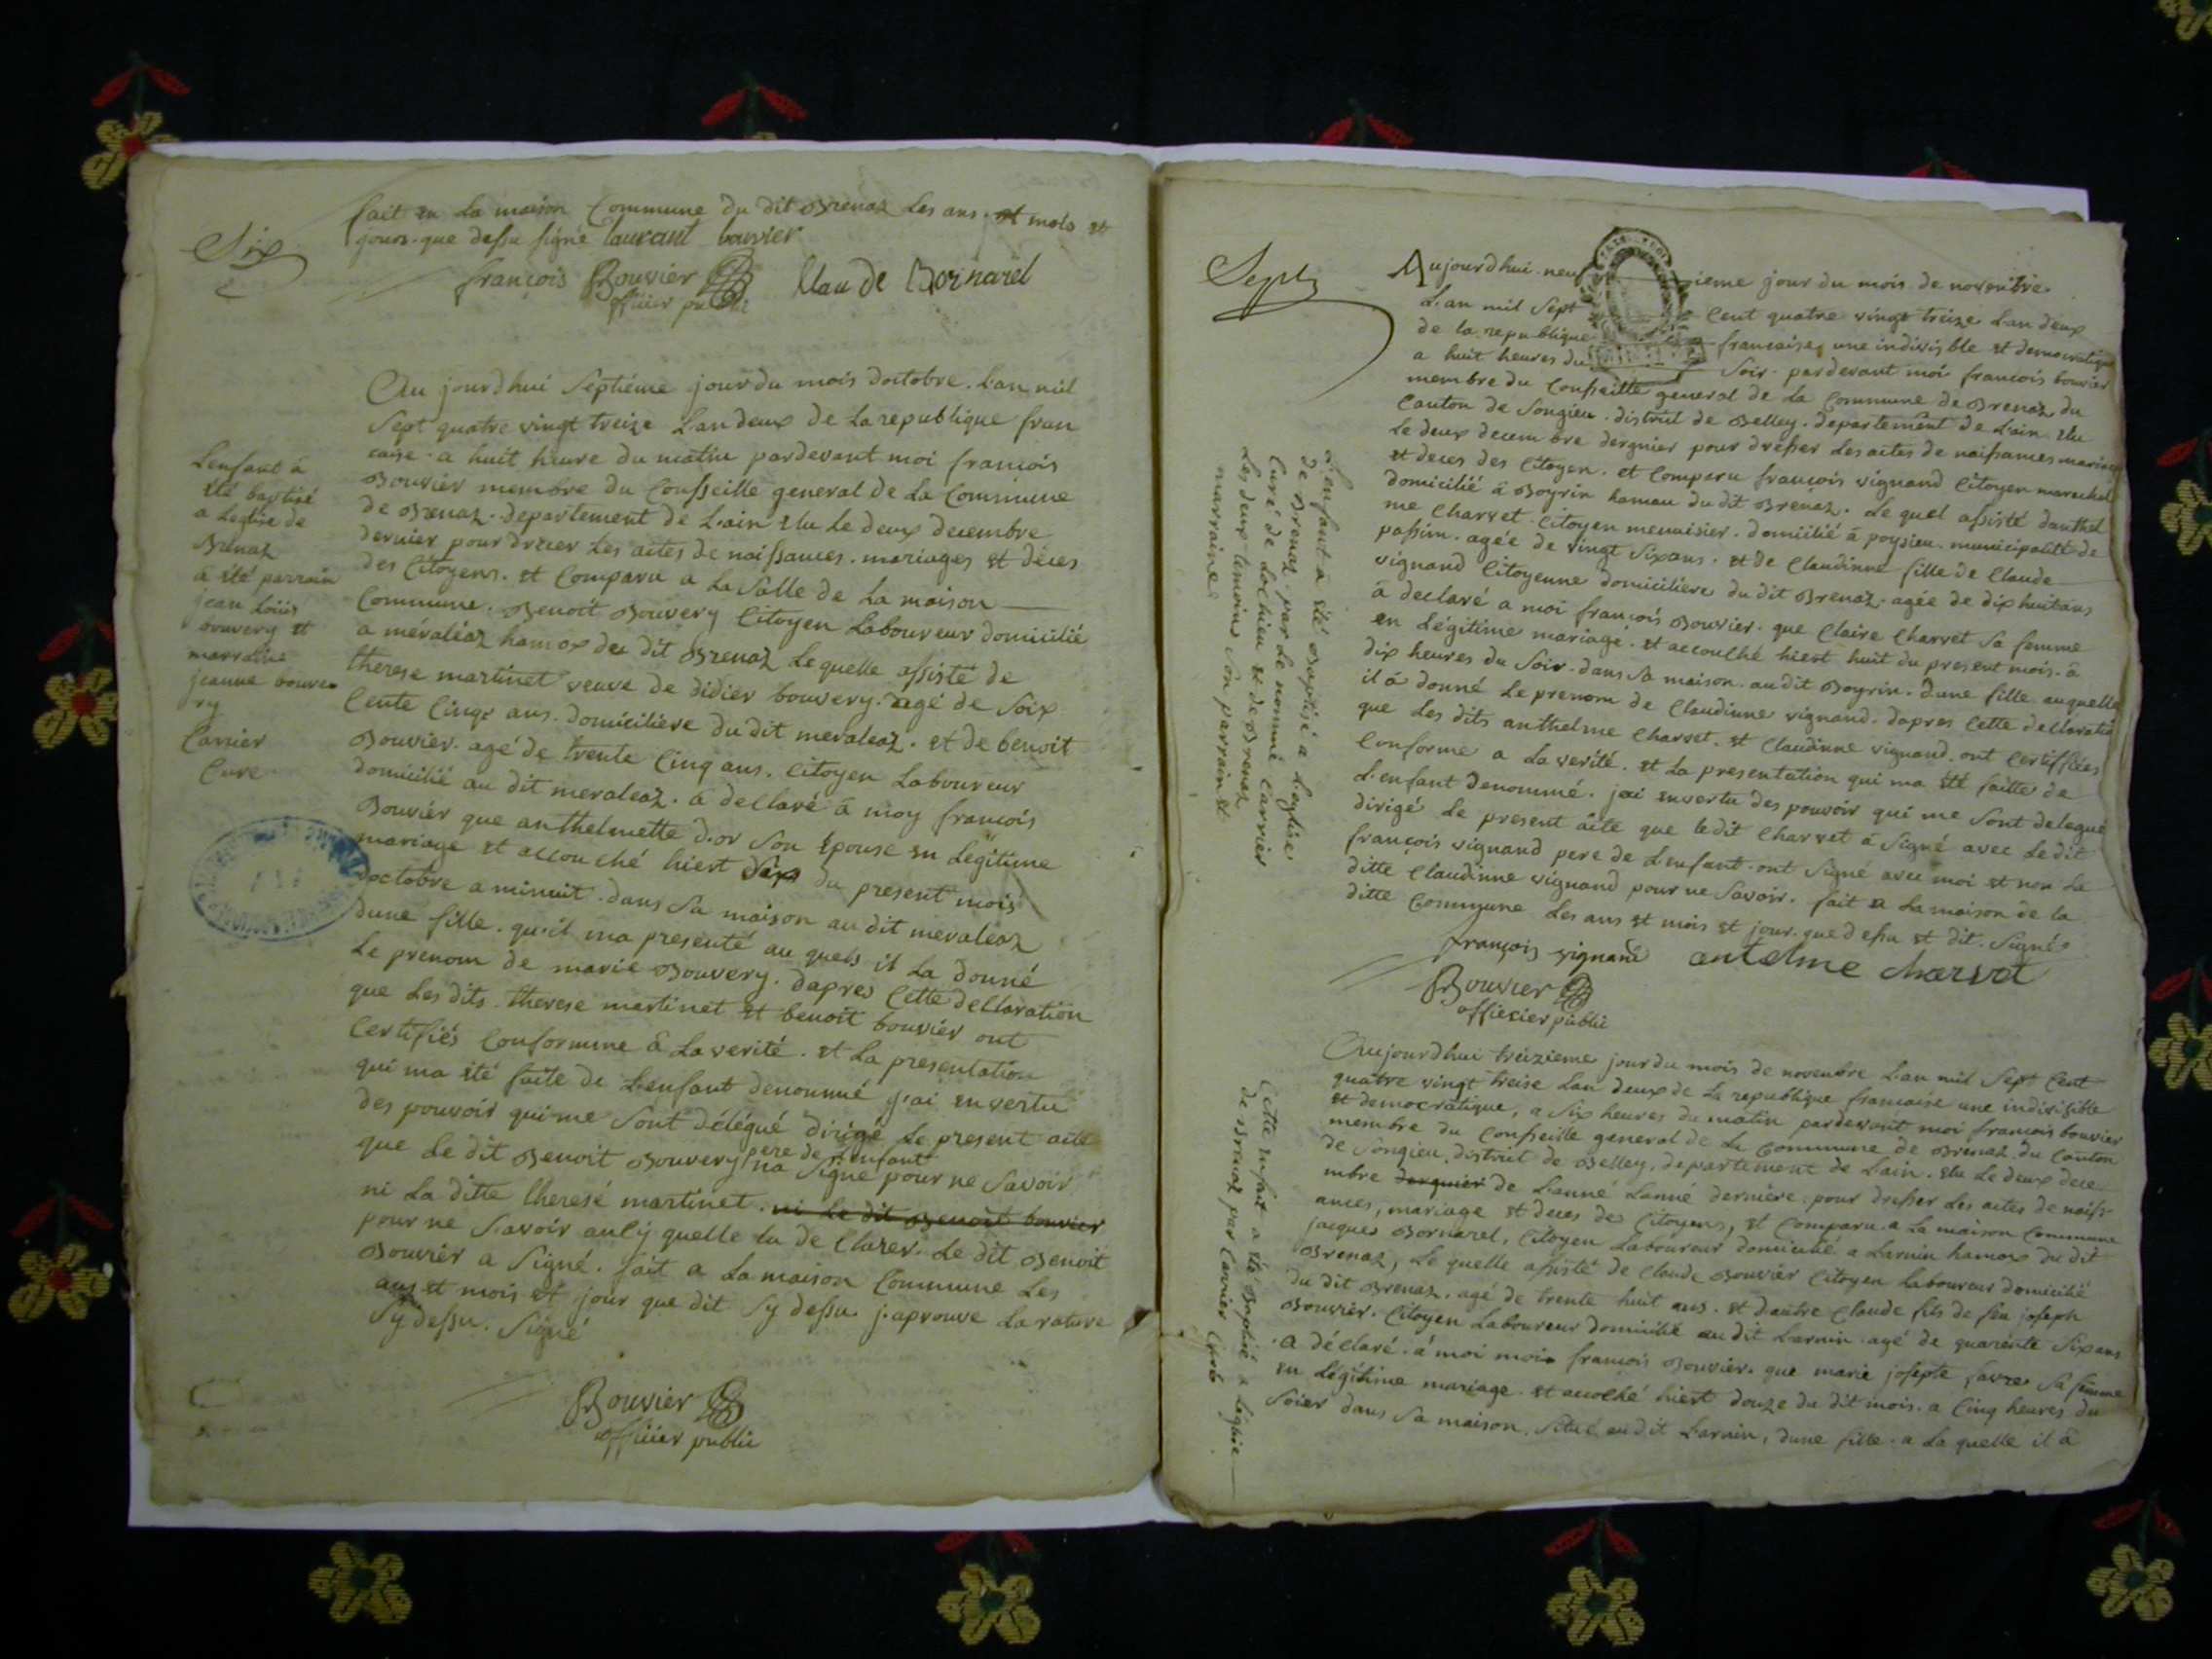 Six
fait en la maison Commune du dit Brenaz les ans et mois et
jours que dessu signé laurant bouvier
françois Bouvier Claude Bornarel
officier public
Au jourdhui septiéme jour du mois doctobre. l'an mil
sept quatre vingt treize l'an deux de la republique fran
caise a huit heure du matin pardevant moi françois
Bouvier membre du Consseille general de la Commune
de Brenaz departement de l'ain elu le deux decembre
dernier pour drecer les actes de naissances. mariages et déces
des Citoyens. et Comparu a la salle de la maison
Commune. Benoit Bouvery Citoyen laboureur domicilié
a méraléaz hamox du dit Brenaz lequelle assisté de
therese martinet veuve de didier bouvery agé de soix
cente cinqe ans. domiciliere du dit meraleaz. et de benoit
Bouvier. agé de trente cinq ans. citoyen laboureur
domicilié au dit meraleaz. a declaré à moy francois
Bouvier que anthelmette d'or son epouse en legitime
mariage et accouché hiert six du present mois
doctobre a minuit. dans sa maison au dit meraleaz
dune fille. qu'il ma presenté au quels il la donné
le prenom de marie Bouvery. dapres cette declaration
que les dits therese martinet et benoit bouvier ont
certifiés conformme à la verité. et la presentation
qui ma été faite de l'enfant denommé j'ai en vertu
des pouvoir qui me sont délégué dirigé le present acte
que le dit Benoit Bouvery pere de l'enfant na signé pour ne savoir
ni la ditte theresé martinet. ni le dit Benoit bouvier
pour ne savoir auly quelle la de clarer. le dit Benoit
Bouvier a signé. fait a la maison Commune les
ans et mois et jour que dit sy dessu j'aprouve la rature
sy dessu. signé
Bouvier
officier public
L'enfant à
été baptisé
a leglise de
Brenaz
a été parrain
jean loüis
bouvery et
marraine
jeanne bouve
ry
Carrier
Curé
Sept
Aujourdhui neuf ieme jour du mois de novembre
l'an mil sept Cent quatre vingt treize l'an deux
de la republique francaise, une indivisible et democratique
a huit heures du soir. pardevant moi francois bouvier
membre du Consseille general de la Commune de Brenaz du
Canton de Songieu. district de Belley. departement de l'ain elu
le deux decembre dergnier pour dresser les actes de naissances mariage
et deces des Citoyen. et Comparu françois vignand Citoyen marechal
domicilié à Boyrin hamau du dit Brenaz. le quel assisté danthel
me Charvet Citoyen menuisier. domicilié à poysieu. municipalité de
passin. agée de vingt six ans. et de Claudinne fille de Claude
vignand Citoyenne domiciliere du dit Brenaz. agée de dix huit ans
à declaré a moi françois Bouvier. que Claire Charvet sa femme
en légitime mariage. et accouché hiert huit du present mois. à
dix heures du soir. dans sa maison. au dit Boyrin. dune fille auquelle
il a donné le prenom de Claudinne vignand. dapres cette declaratio
que les dits anthelme Charvet. et Claudinne vignand. ont certiffiées
conforme a la verité. et la presentation qui ma été faitte de
l'enfant denommé. jai envertu des pouvoir qui me sont delegué
dirigé le present acte que ledit Charvet à signé avec ledit
françois vignand pere de l'enfant ont signé avec moi et non la
ditte Claudinne vignand pour ne savoir. fait a la maison de la
ditte Commune les ans et mois et jour. que dessu et dit. signé
françois vignand antelme charvet
Bouvier
offiecier public
L'enfant a été Baptisé a l'eglise
de Brenaz par le nommé Carrier
Curé de Lochieu et de Brenaz
les deux temoins son parrain et
marraine
Aujourdhui treizieme jour du mois de novembre l'an mil sept cent
quatre vingt treise lan deux de la republique francaise une indivisible
et democratique, a six heures du matin pardevant moi francois bouvier
membre du Consseille general de la Commune de Brenaz du Canton
de Songieu, district de Belley, departement de l'ain. elu le deux dece
mbre dergnier de l'anné lanné derniere pour dresser les actes de naiss
ances, mariage et deces des Citoyens, et Comparu a la maison Commune
jacques Bornarel, Citoyen laboureur domicilié a Larnin hamox du dit
Brenaz, le quelle assisté de Claude Bouvier Citoyen laboureur domicilié
du dit Brenaz. agé de trente huit ans. et dautre Claude fils de feu joseph
Bouvier. Citoyen laboureur domicilié au dit Larnin agé de quarente six ans
a déclaré à moi moi francois Bouvier. que marie josepte favre sa femme
en légitime mariage. et accolhé hiert douze du dit mois. a cinq heures du
soier dans sa maison. situé au dit Larnin, dune fille. a la quelle il à
Cette enfant a été Baptisé a leglise
de Brenaz par Carrier Curé